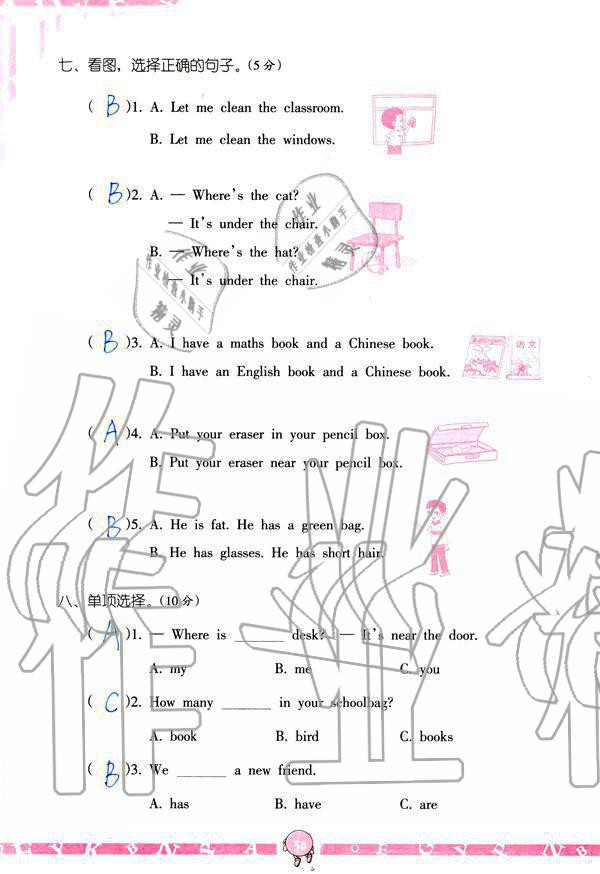 七、看图，选择正确的句子。(5分)
( B )1. A. Let me clean the classroom.
B. Let me clean the windows.
( B )2. A. — Where's the cat?
— It's under the chair.
B. — Where's the hat?
— It's under the chair.
( B )3. A. I have a maths book and a Chinese book.
B. I have an English book and a Chinese book.
英语English 语文
( A )4. A. Put your eraser in your pencil box.
B. Put your eraser near your pencil box.
( B )5. A. He is fat. He has a green bag.
B. He has glasses. He has short hair.
八、单项选择。(10分)
( A )1. — Where is ______ desk? — It's near the door.
A. my B. me C. you
( C )2. How many ______ in your schoolbag?
A. book B. bird C. books
( B )3. We ______ a new friend.
A. has B. have C. are
38
作业
作业检查小助手
精灵
作业
作业检查小助手
精灵
作业